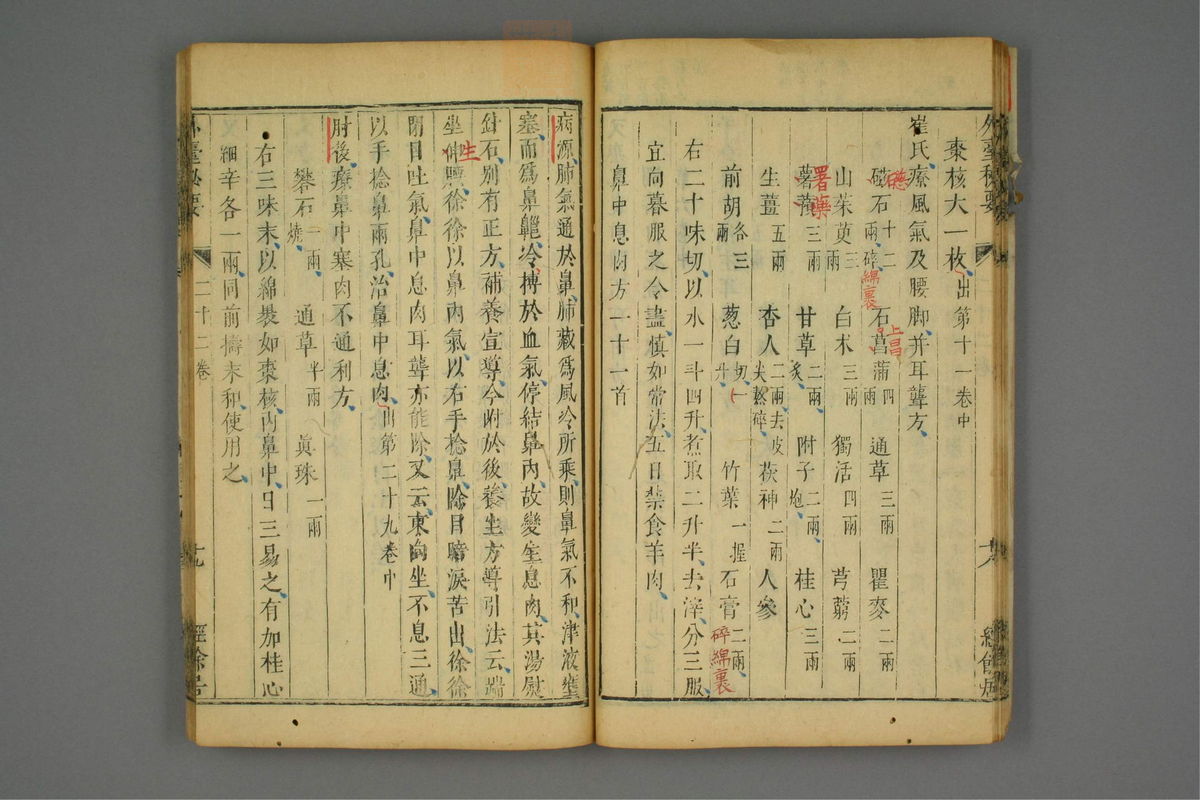 棗核大一枚出第十一卷中
崔氏療風氣及腰脚并耳聾方
磁石十二兩碎綿裏 石菖蒲四兩 通草三兩 瞿麥二兩
山茱萸三兩 白朮三兩 獨活四兩 芎藭二兩
薯蕷三兩 甘草二兩炙 附子二兩炮 桂心三兩
署藥
生薑五兩 杏人二兩去皮尖熬碎 茯神二兩 人參
前胡各三兩 葱白切一升 竹葉一握 石膏二兩碎綿裏
右二十味切以水一斗四升煮取二升半去滓分三服
宜向暮服之令盡慎如常法五日禁食羊肉
鼻中息肉方一十一首
病源肺氣通於鼻肺藏爲風冷所乘則鼻氣不和津液壅
塞而爲鼻齆冷搏於血氣停結鼻內故變生息肉其湯熨
針石別有正方補養宣導今附於後養生方導引法云端
坐伸腰徐徐以鼻內氣以右手捻鼻除目暗淚苦出徐徐
生
閉目吐氣鼻中息肉耳聾亦能除又云東向坐不息三通
以手捻鼻兩孔治鼻中息肉出第二十九卷中
肘後療鼻中塞肉不通利方
礬石一兩燒 通草半兩 眞珠一兩
右三味末以綿裹如棗核內鼻中日三易之有加桂心
細辛各一兩同前擣末和使用之
外臺秘要
二十二卷
十九
經餘居